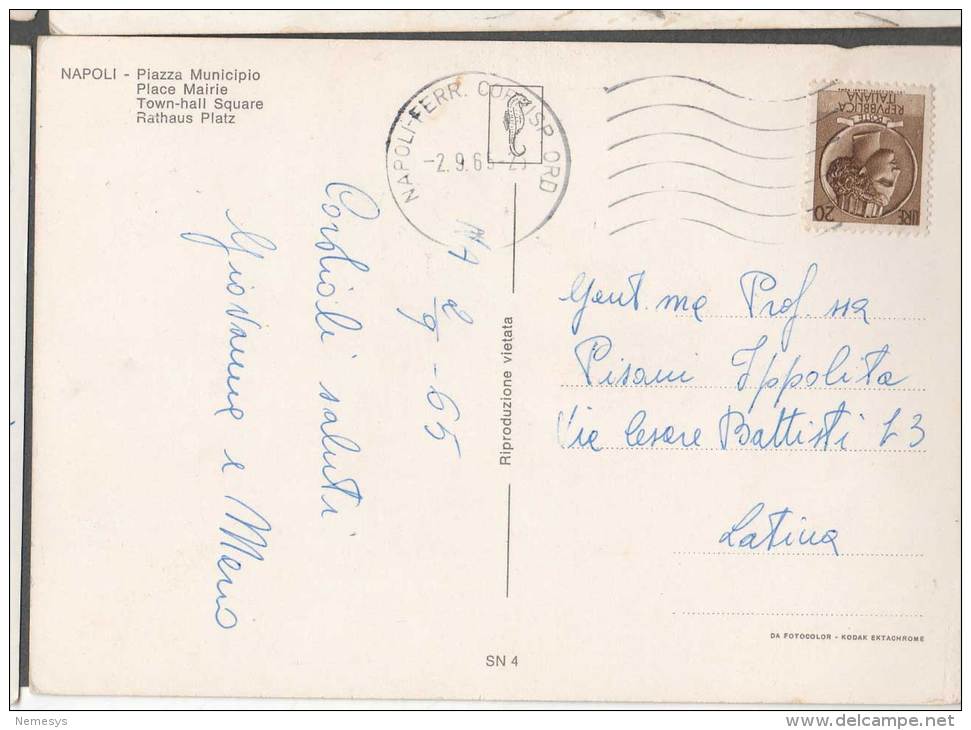 NAPOLI - Piazza Municipio
Place Mairie
Town-hall Square
Rathaus Platz
NAPOLI-FERR. CORRISP. ORD
-2.9.65-2
REPVBBLICA
ITALIANA
POSTE
LIRE 20
NA 2/9-65
Cordiali saluti
Giovanna e Mario
Riproduzione vietata
Gent.ma Prof.ssa
Pisani Ippolita
Via Cesare Battisti 23
Latina
DA FOTOCOLOR - KODAK EKTACHROME
SN 4
Nemesys
delcampe.net